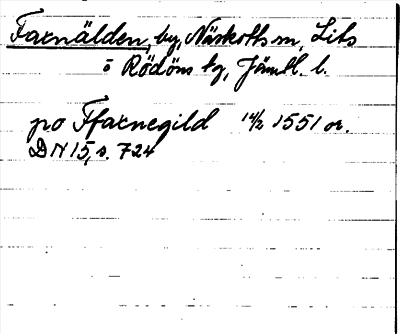 Faxnälden, by, Näskotts sn, Lits
o Rödöns tg, Jämtl. l.
po Ffaxnegild 14/2 1551 or.
DN 15, s. 724